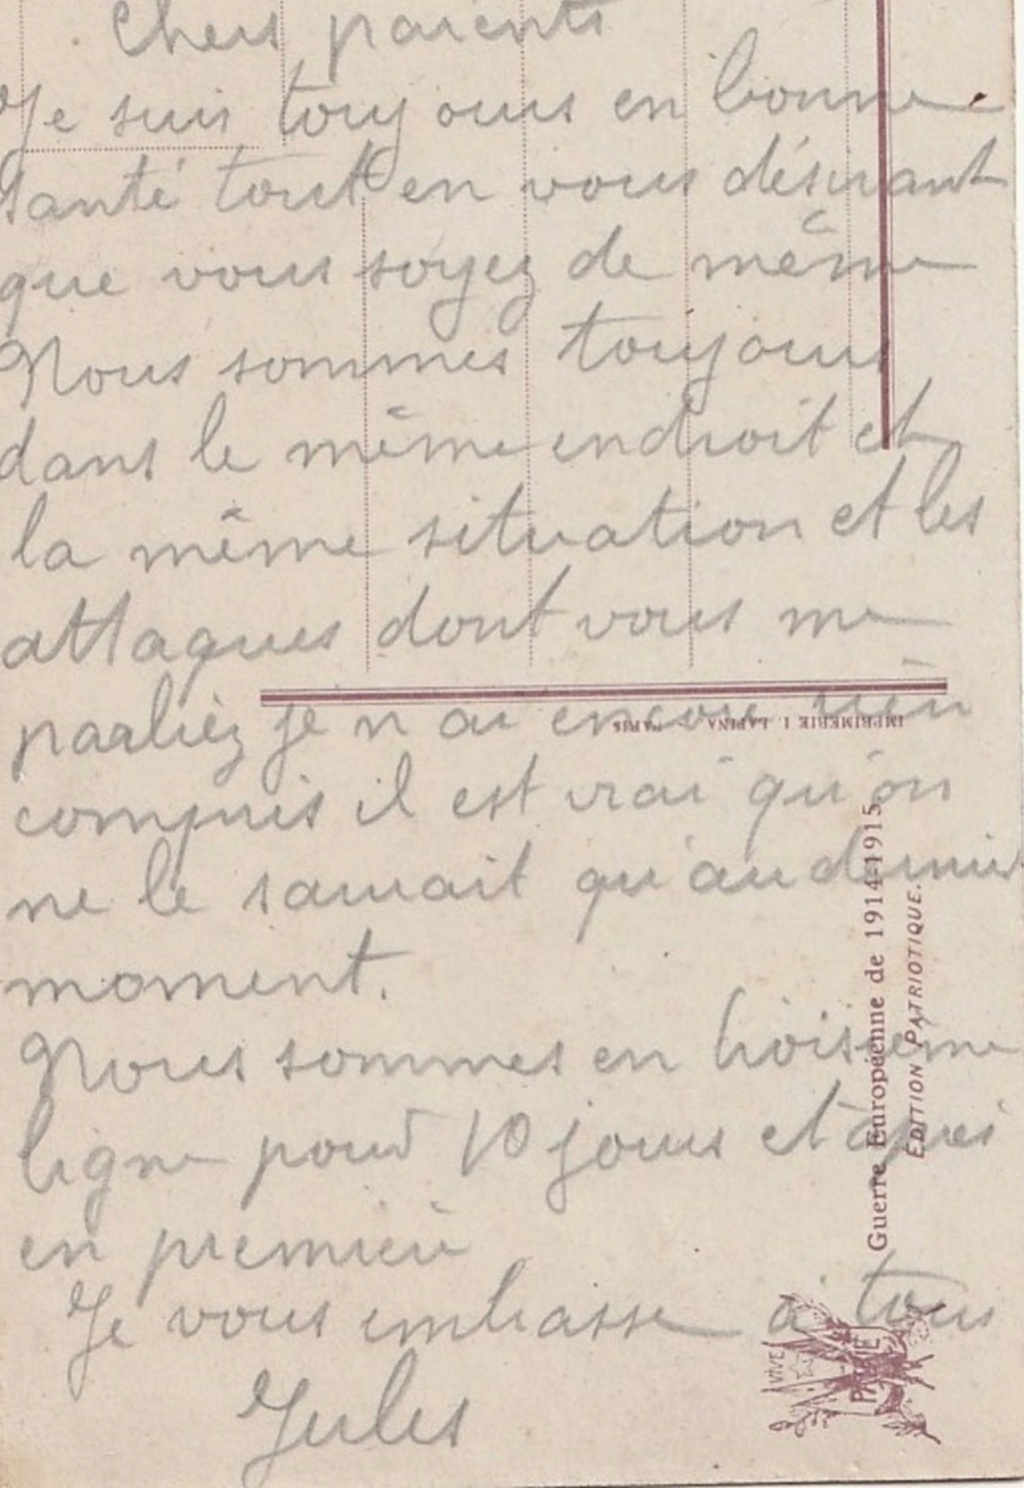 Chers parents
Je suis toujours en bonne
santé tout en vous désirant
que vous soyez de même
Nous sommes toujours
dans le même endroit et
la même situation et les
attaques dont vous me
parliez je n ai encore rien
compris il est vrai qu'on
ne le saurait qu'au dernier
moment.
Nous sommes en troisième
ligne pour 10 jours et après
en première
Je vous embrasse à tous
Jules
IMPRIMERIE I. LAPINA PARIS
Guerre Européenne de 1914-1915
EDITION PATRIOTIQUE.
VIVE
PATRIE